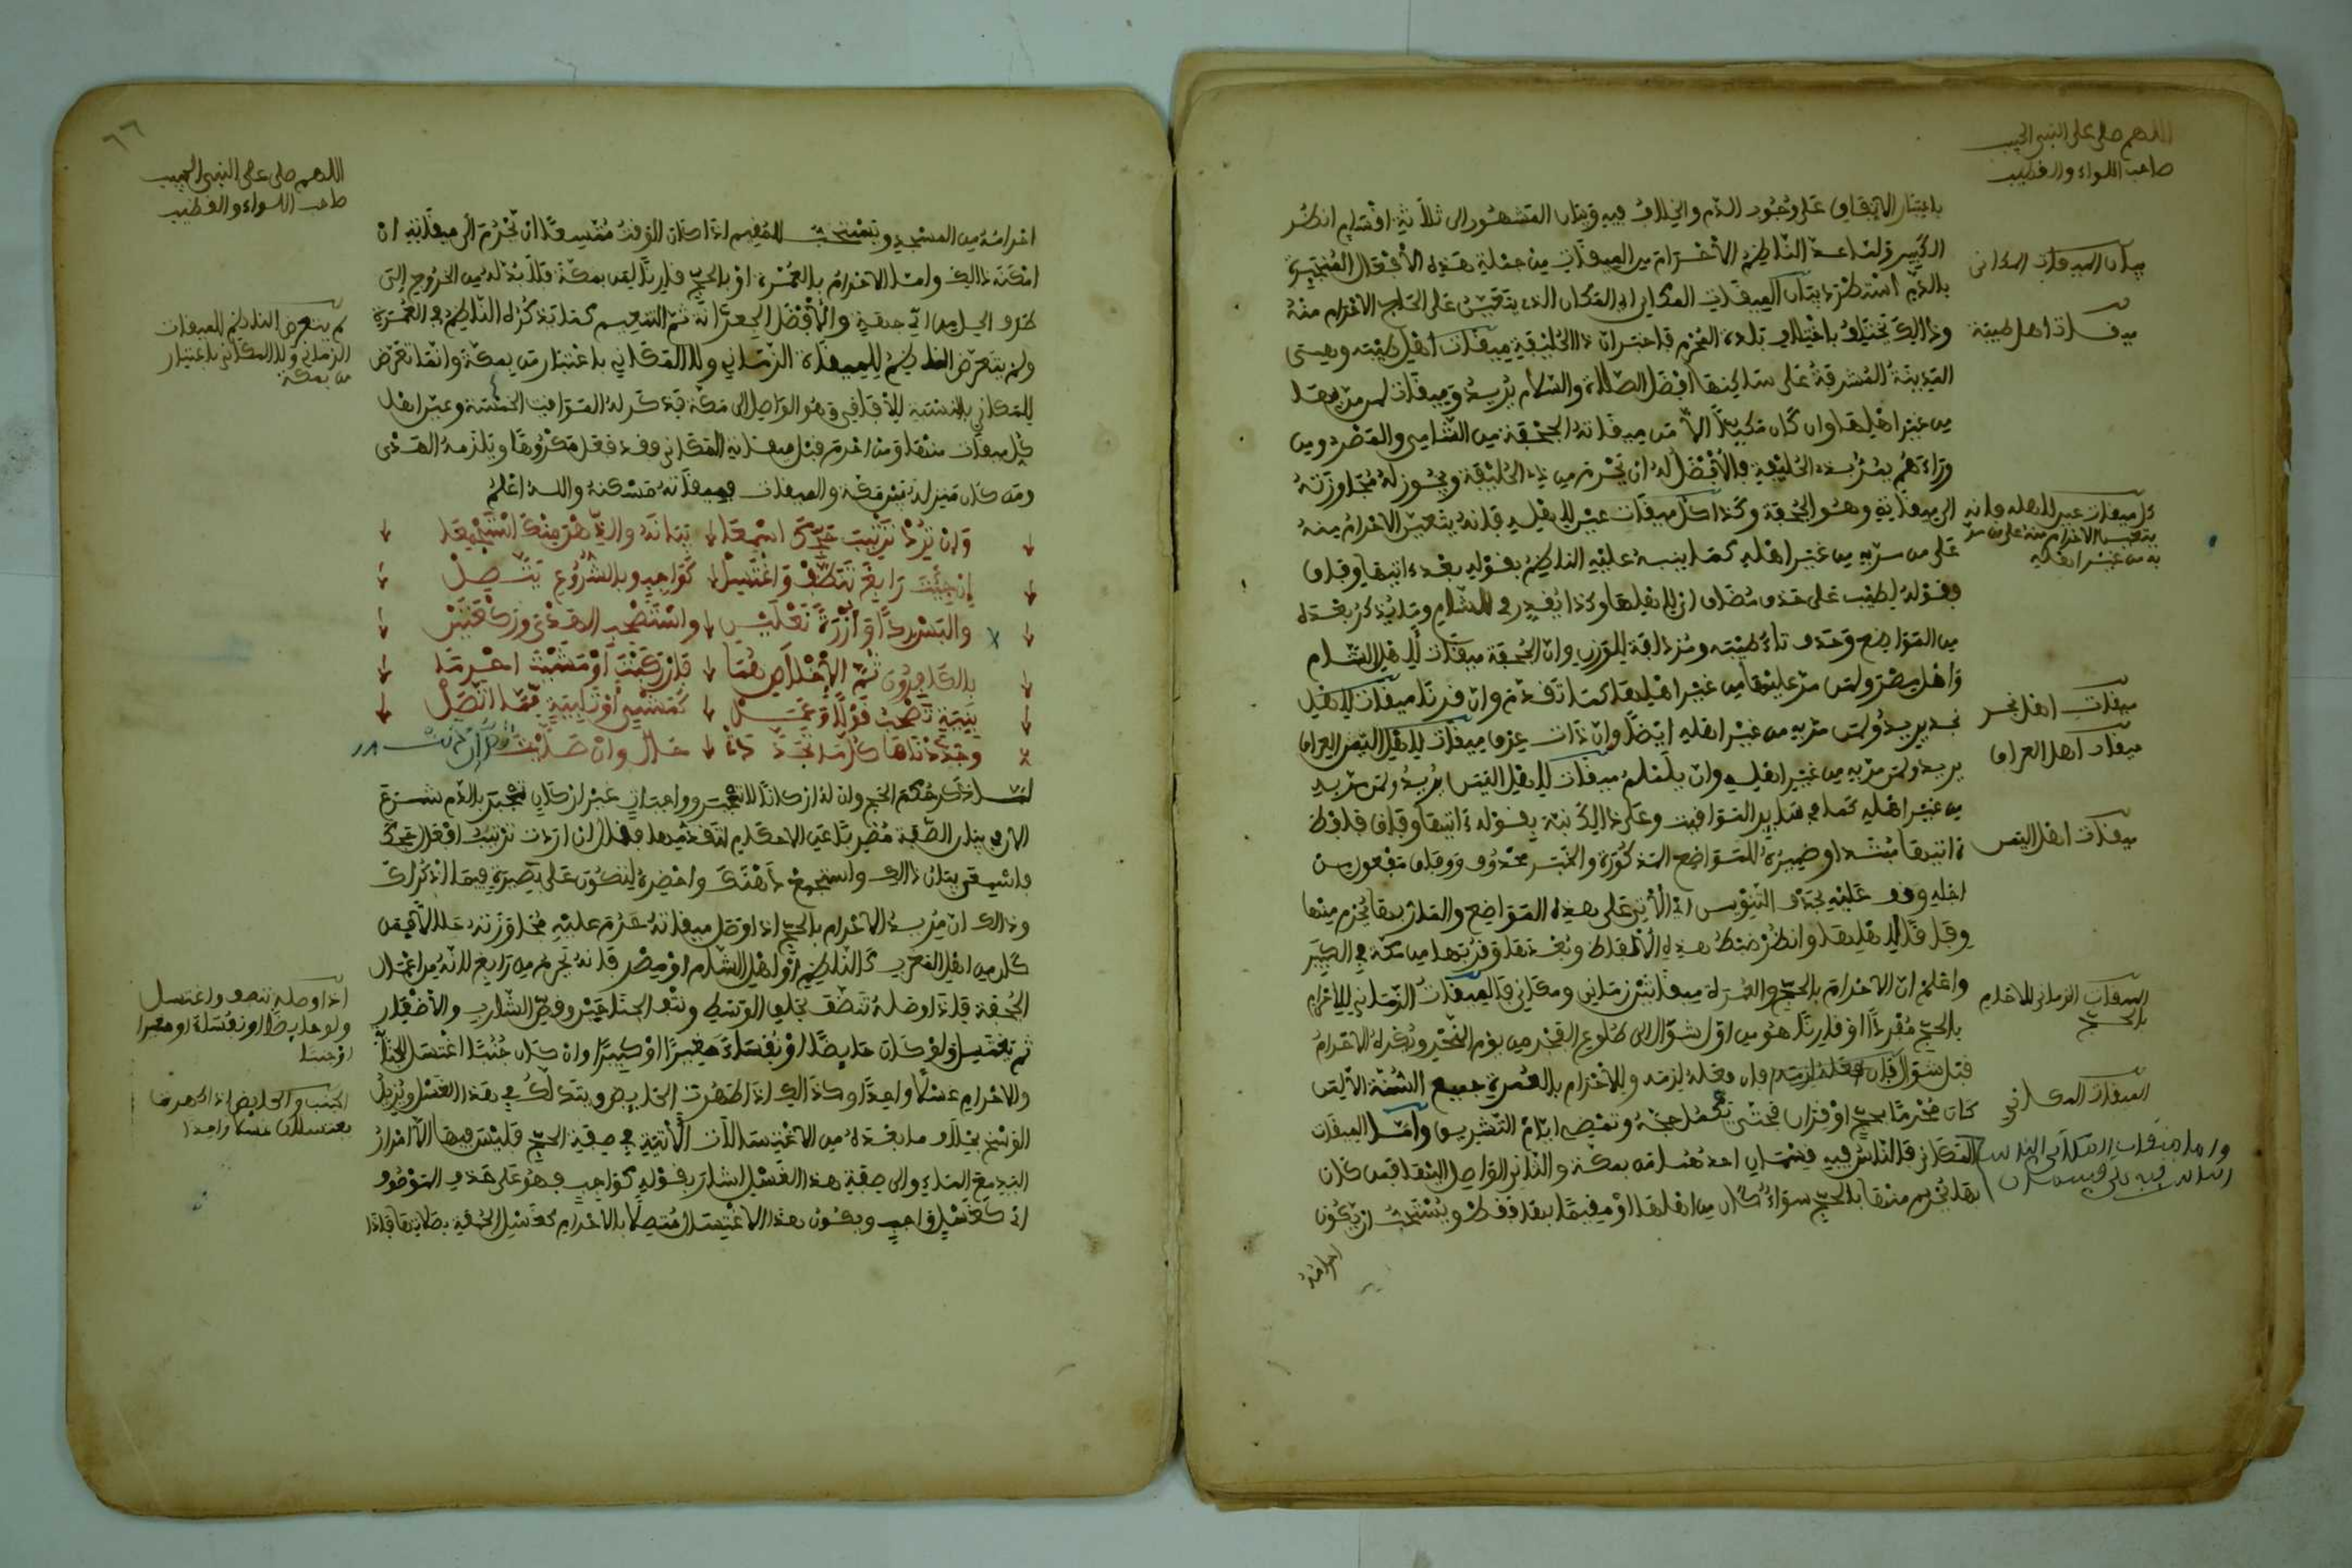 اللهم صل على النبي الحبيب
صاحب اللواء والقضيب
باعتبار الاتفاق على وجوب الدم والخلاف فيه وبيان المشهور الى ثلاثة اقسام انظر
الكبير ولما عد الناظم الاحرام من الميقات من جملة هذه الافعال المنجبرة
بالدم استطرد بيان الميقات المكاني اي المكان الذي يتعين على الحاج الاحرام منه
وذالك يختلف باختلاف بلد المحرم فاخبر ان ذا الحليفة ميقات اهل طيبة وهي
المدينة المشرفة على ساكنها افضل الصلاة والسلام يريد وميقات لمن مر بها
من غير اهلها وان كان مكيا الا من ميقاته الجحفة من الشامي والمصري ومن
وراءهم يمر بذي الحليفة فالافضل له ان يحرم من ذي الحليفة ويجوز له مجاوزته
الى ميقاته وهو الجحفة وكذا كل ميقات عين لاهله فانه يتعين الاحرام منه
على من مر به من غير اهله كما ينبه عليه الناظم بقوله بعد اتيها وفاق
وقوله لطيب على حذف مضاف اي لاهلها وكذا يقدر في للشام وما يذكر بعده
من المواضع وحذف تاء طيبة ومزدلفة للوزن وان الجحفة ميقات لاهل الشام
واهل مصر ولمن مر عليها من غير اهلها كما تقدم وان قرنا ميقات لاهل
نجد يريد ولمن مر به من غير اهله ايضا وان ذات عرق ميقات لاهل العراق
يريد ولمن مر به من غير اهله وان يلملم ميقات لاهل اليمن يريد ولمن مر به
من غير اهله كما في سائر المواقيت وعلى ذالك نبه بقوله ءاتيها وفاق فلفظ
ءاتيها مبتدا وضميره للمواضع المذكورة والخبر محذوف ووفاق مفعول من
اجله وقف عليه بحذف التنوين اي الآتي على هذه المواضع والمار بها يحرم منها
وفاقا لاهلها وانظر ضبط هذه الالفاظ وبعدها وقربها من مكة في الكبير
واعلم ان الاحرام بالحج والعمرة له ميقاتين زماني ومكاني فالميقات الزماني للاحرام
بالحج مفردا او قارنا هو من اول شوال الى طلوع الفجر من يوم النحر ويكره الاحرام
قبل شوال فان فعله لزمه وللاحرام بالعمرة جميع السنة الا لمن
كان محرما بحج او قران فحتى يكمل حجه وتمضي ايام التشريق واما الميقات
المكاني فالناس فيه قسمان احدهما من بمكة والثاني الواصل اليها فمن كان
بها يحرم منها بالحج سواء كان من اهلها او مقيما بها فقط ويستحب ان يكون
احرامه
بيان الميقات المكاني
ميقات اهل طيبة
كل ميقات عين لاهله فانه
يتعين الاحرام منه على من مر
به من غير اهله
ميقات اهل نجد
ميقات اهل العراق
ميقات اهل اليمن
الميقات الزماني للاحرام
بالحج
الميقات المكاني
واما ميقات المكاني
٦٦
اللهم صل على النبي الحبيب
صاحب اللواء والقضيب
احرامه من المسجد ويستحب للمقيم اذا كان الوقت متسعا ان يخرج الى ميقاته ان
امكنه ذالك واما الاحرام بالعمرة او بالحج قارنا لمن بمكة فلا بد له من الخروج الى
طرف الحل من اي جهة والافضل الجعرانة ثم التنعيم كما يذكره الناظم في العمرة
ولم يتعرض الناظم للميقات الزماني ولا المكاني باعتبار من بمكة وانما تعرض
للمكاني بالنسبة للآفاقي وهو الواصل الى مكة فذكر له المواقيت الخمسة وعين اهل
كل ميقات منها ومن احرم قبل ميقاته المكاني فقد فعل مكروها ويلزمه الهدي
ومن كان منزله بين مكة والميقات فميقاته مسكنه والله اعلم
وان ترد ترتيب حجك اسمعا بيانه والذهن منك استجمعا
ان جئت رابغ تنظف واغتسل كواجب وبالشروع يتصل
والبس ردا وازرة نعلين واستصحب الهدي وركعتين
بالكافرون ثم الاخلاص هما فان ركبت او مشيت احرما
بنية تصحب قولا وعمل كمشي او تلبية مما اتصل
وجددنها كلما تجددت حال وان صليت
لما ذكر حكم الحج وان له اركانا لا تنجبر وواجبات غير اركان تنجبر بالدم شرع
الآن في بيان الصفة مضربا عن الاحكام لتقدمها فقال ان اردت ترتيب افعال حجك
فاسمع بيان ذالك واستجمع ذهنك واحضره لتكون على بصيرة فيما اذكر لك
وذالك ان مريد الاحرام بالحج اذا وصل ميقاته حرم عليه مجاوزته حلالا فمن
كان من اهل المغرب كالناظم او اهل الشام او مصر فانه يحرم من رابغ لانه من اعمال
الجحفة فاذا وصله تنظف بحلق الوسط ونتف الجناحين وقص الشارب والاظفار
ثم يغتسل ولو كان حايضا او نفساء صغيرا او كبيرا وان كان جنبا اغتسل للجنابة
والاحرام غسلا واحدا وكذالك اذا طهرت الحايض ويتدلك في هذا الغسل ويزيل
الوسخ بخلاف ما بعده من الاغتسالات الآتية في صفة الحج فليس فيها الا امرار
اليد مع الماء والى صفة هذا الغسل اشار بقوله كواجب فهو على حذف الموصوف
اي كغسل واجب ويكون هذا الاغتسال متصلا بالاحرام كغسل الجمعة بصلاتها فاذا
لم يتعرض الناظم للميقات
الزماني ولا المكاني باعتبار
من بمكة
اذا وصله تنظف واغتسل
ولو حايضا او نفساء او صغيرا
الجنب والحايض اذا طهرت
يغتسلان غسلا واحدا